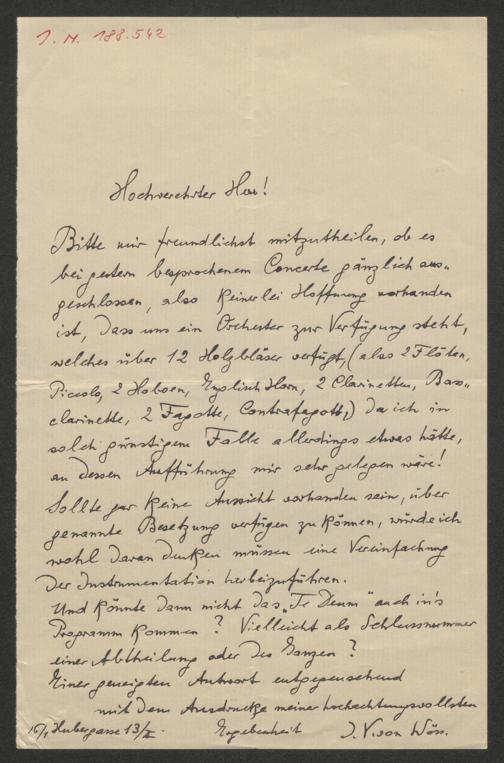 J. N. 188.542
Hochverehrter Herr!
Bitte mir freundlichst mitzutheilen, ob es
bei gestern besprochenem Concerte gänzlich aus„
geschlossen, also keinerlei Hoffnung vorhanden
ist, dass uns ein Orchester zur Verfügung steht,
welches über 12 Holzbläser verfügt, (also 2 Flöten,
Piccolo, 2 Hoboen, Englisch Horn, 2 Clarinetten, Bass„
clarinette, 2 Fagotte, Contrafagott,) da ich in
solch günstigem Falle allerdings etwas hätte,
an dessen Aufführung mir sehr gelegen wäre!
Sollte gar keine Aussicht vorhanden sein, über
genannte Besetzung verfügen zu können, würde ich
wohl daran denken müssen eine Vereinfachung
der Instrumentation herbeizuführen.
Und könnte dann nicht das „Te Deum" auch in's
Programm kommen? Vielleicht als Schlussnummer
einer Abtheilung oder des Ganzen?
Einer geneigten Antwort entgegensehend
mit dem Ausdrucke meiner hochachtungsvollsten
Ergebenheit J. V. von Wöss.
16/1 Hubergasse 13/II.